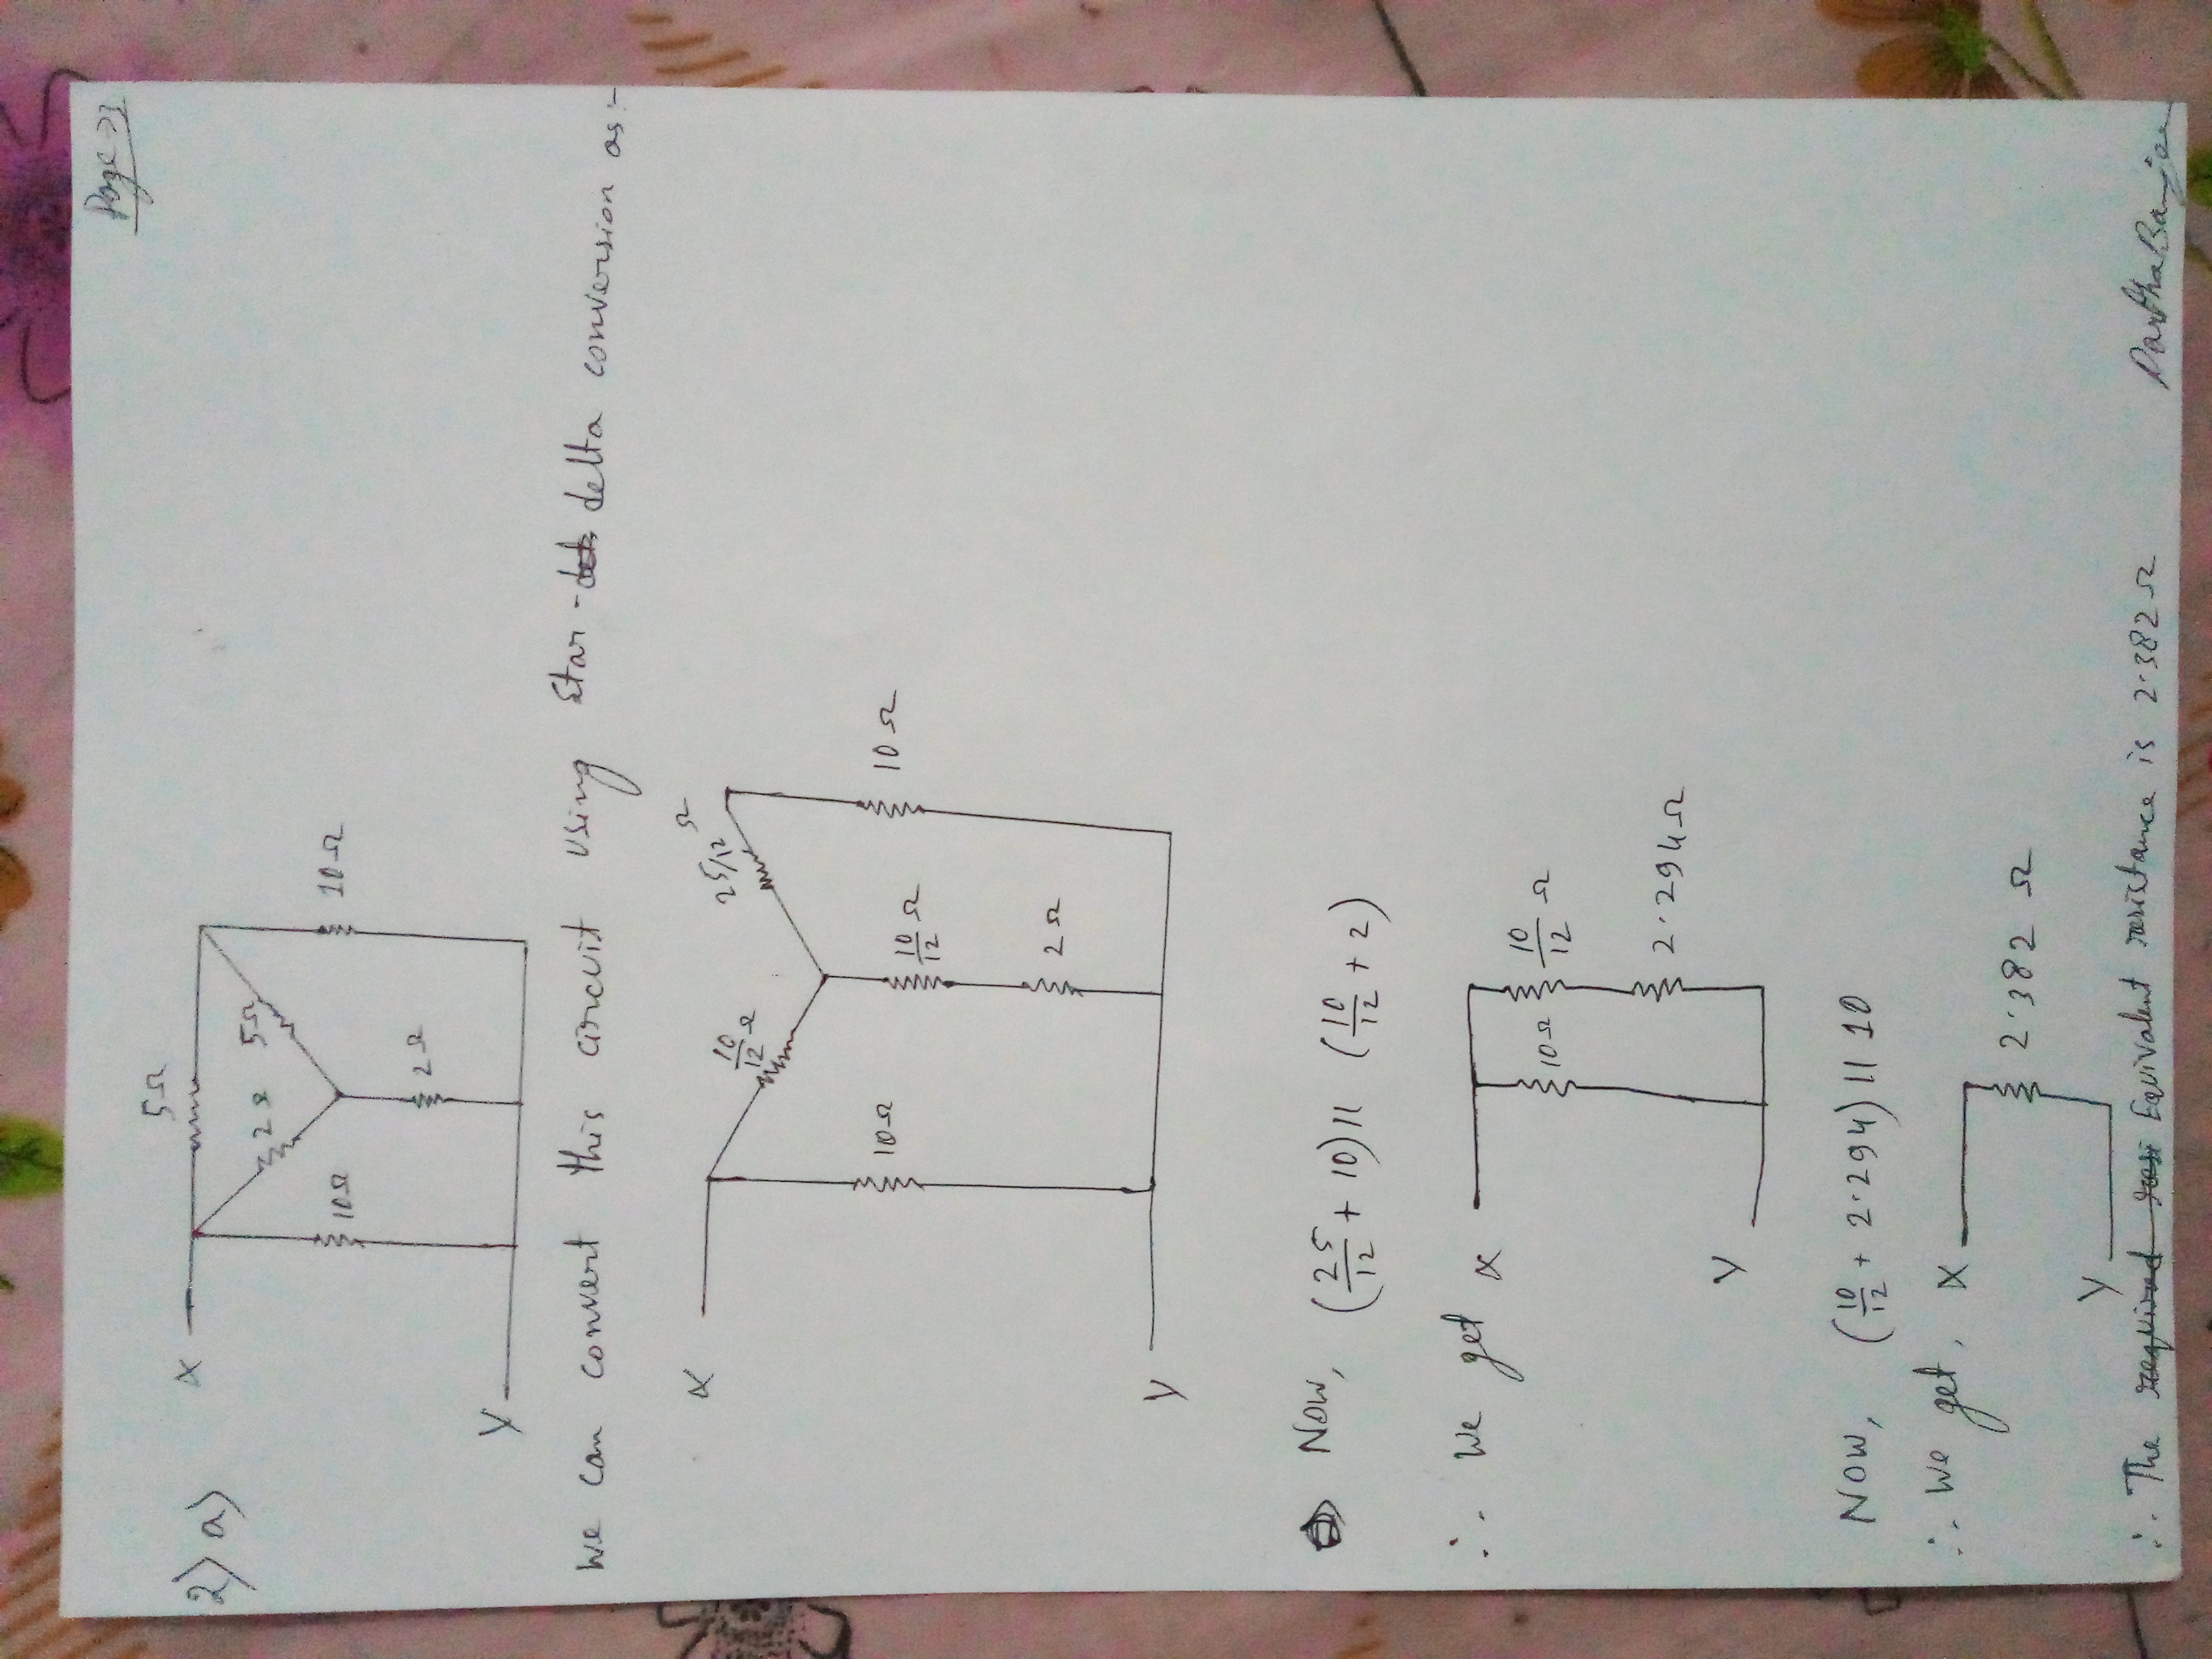 Page → 3
2) a)
X
5Ω
2Ω
5Ω
10Ω
10Ω
2Ω
Y
We can convert this circuit using Star - delta conversion as:-
X
10/12 Ω
25/12 Ω
10Ω
10/12 Ω
10Ω
2Ω
Y
Now, (25/12 + 10) || (10/12 + 2)
∴ We get X
10Ω
10/12 Ω
2.294Ω
Y
Now, (10/12 + 2.294) || 10
∴ We get, X
2.382 Ω
Y
∴ The required resi Equivalent resistance is 2.382Ω
Partha Banerjee